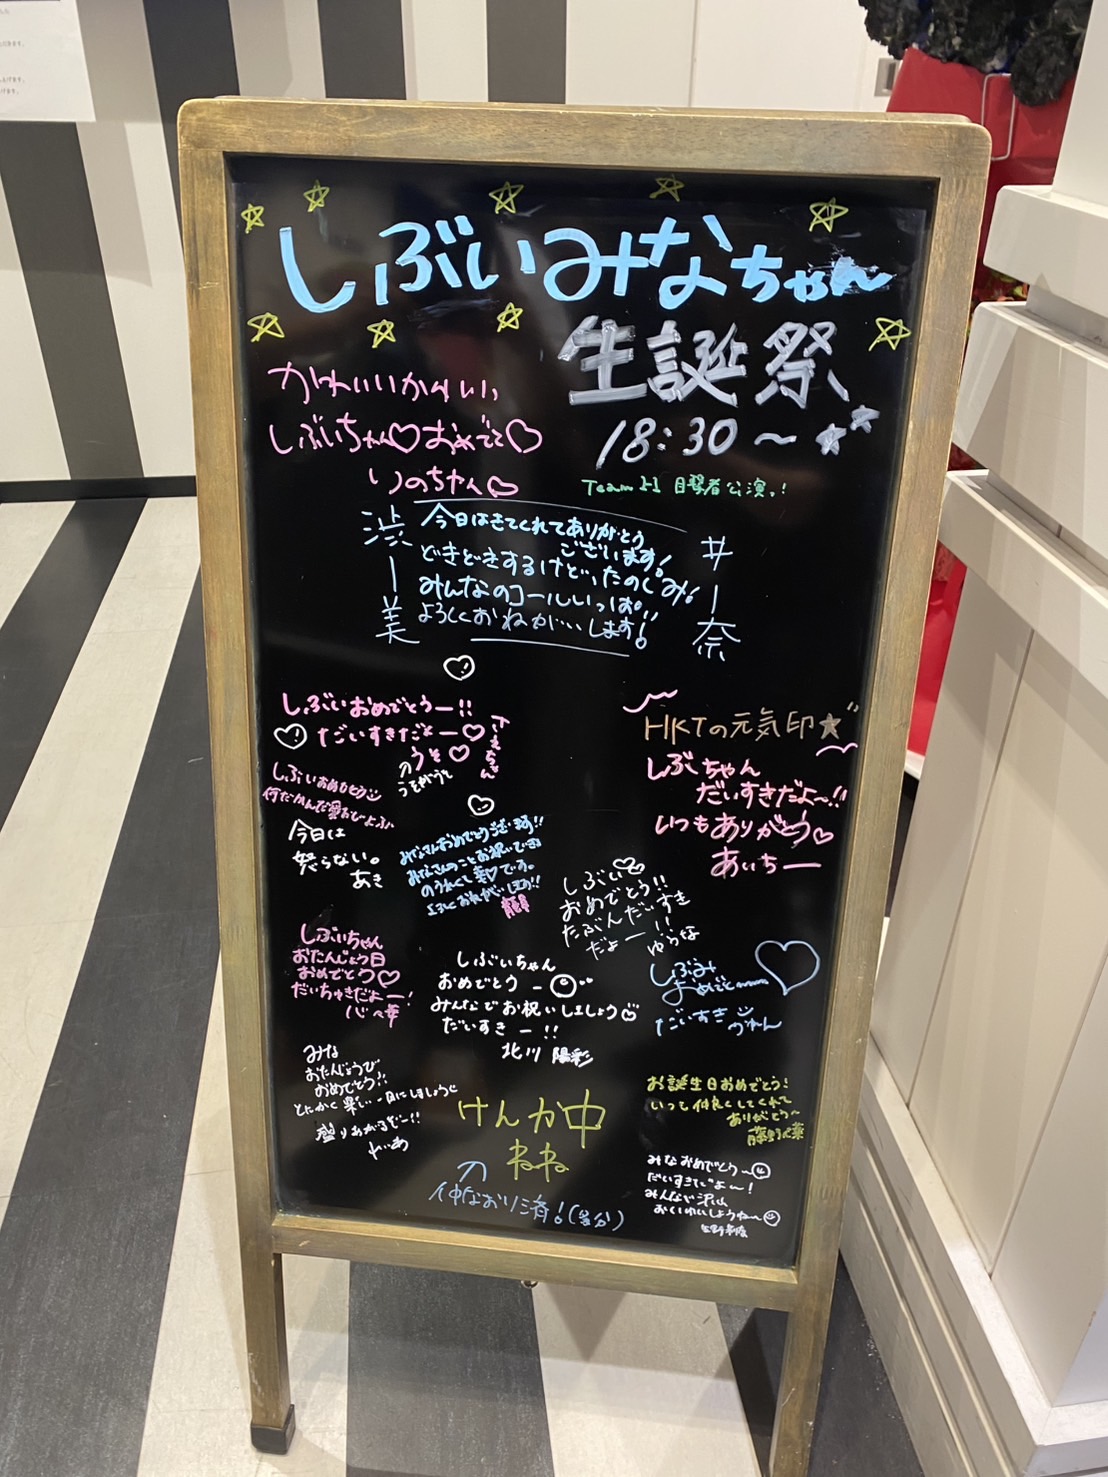 しぶいみなちゃん
生誕祭
18:30〜
かわいいかわいい
しぶいちゃん♡おめでと♡
りのちゃん♡
Team H 目撃者公演。!
渋
井
美
奈
今日はきてくれてありがとう
ございます!
どきどきするけど、たのしみ!
みんなのコールいっぱい!!
よろしくおねがいします!
しぶいおめでとうー!!
♡だいすきだよー♡
さえちゃん
うそ♡
HKTの元気印★
しぶちゃん
だいすきだよ〜!!
いつもありがとう♡
あいちー
今日は
怒らない。
あき
みなさんおめでとうございます!!
みなさんのことお祝いできる
よろしくおねがいします!!
しぶい♡
おめでとう!!
たぶんだいすき
だよー!!
ゆうな
しぶいちゃん
おたんじょう日
おめでとう♡
だいちゅきだよー!
しぶいちゃん
おめでとう
みんなでお祝いしましょう
だいすきー!!
北川 陽彩
しぶみ
おめでとー
だいすき
みな
おたんじょうび
おめでとう!!
とにかく楽しい一日にしましょう
盛りあがるぞー!!
れいあ
お誕生日おめでとう!
いつも仲良くしてくれて
ありがとう〜
けんか中
ねね
仲なおり済!
みなおめでとう〜
だいすきだよ〜!
みんなで沢山
おいわいしようね〜